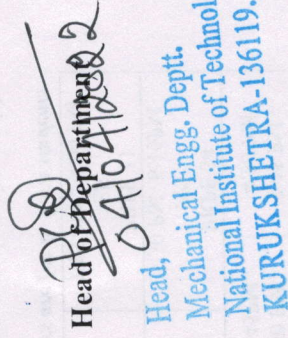 Head of Department
04/04/2022
Head,
Mechanical Engg. Deptt.
National Institute of Technol
KURUKSHETRA-136119.